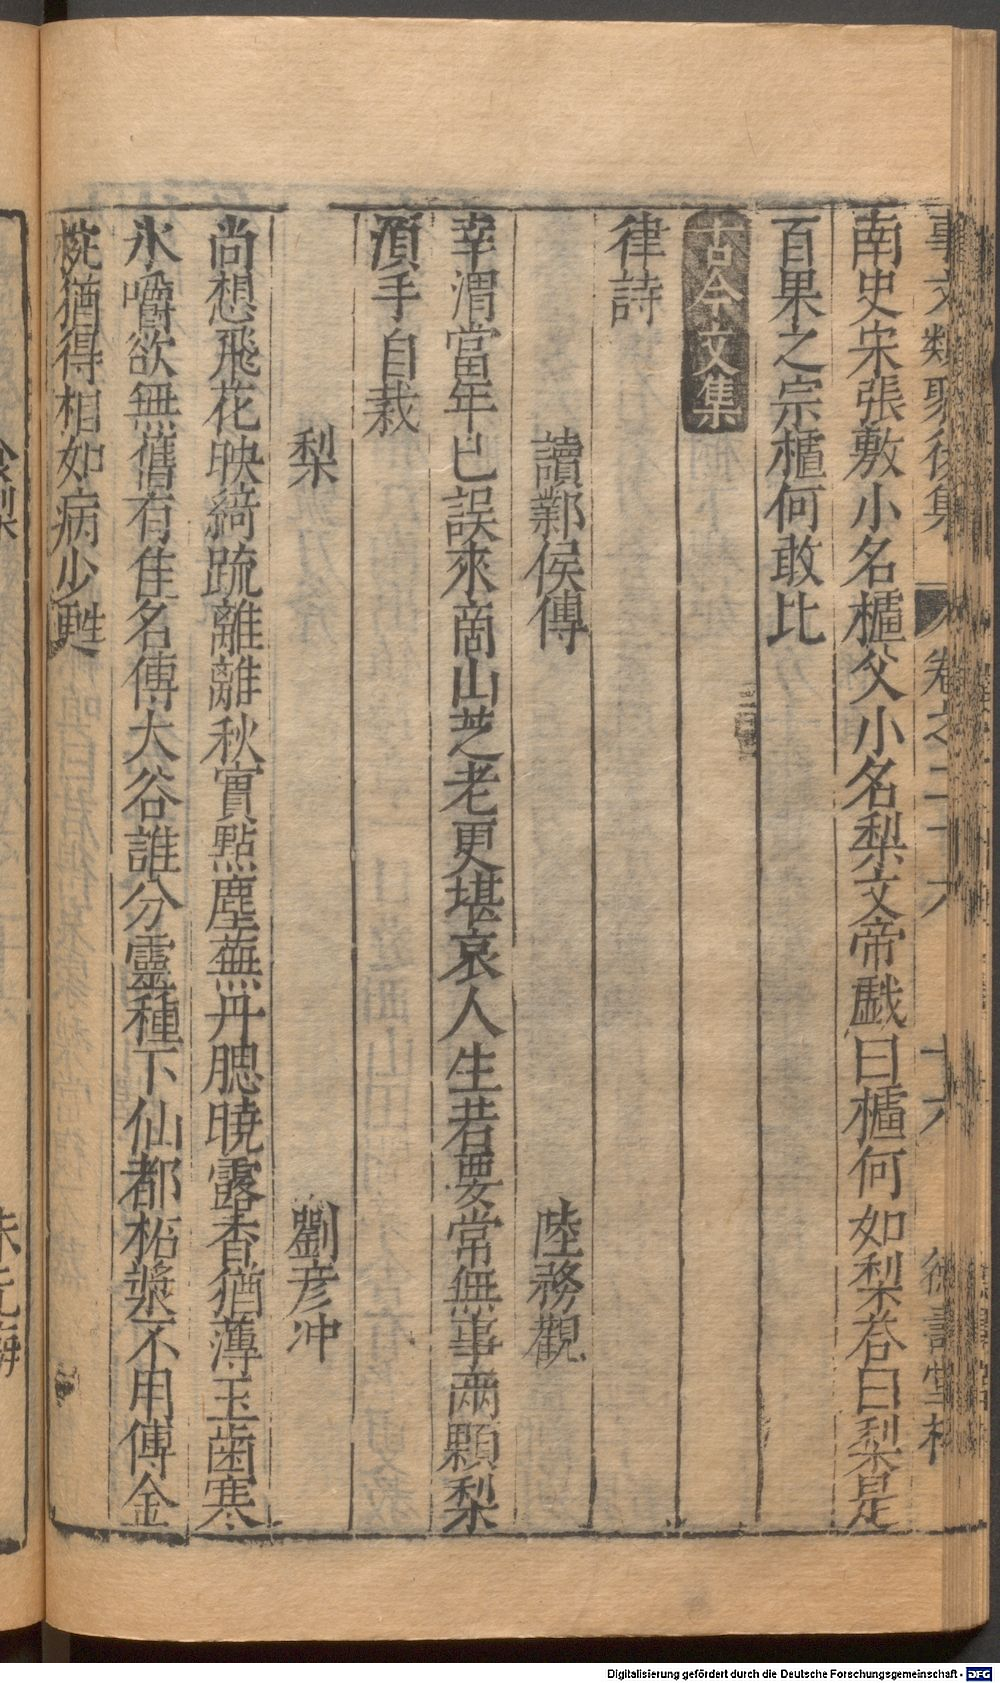 事文類聚後集 卷之二十六 十六 德壽堂梓
南史宋張敷小名樝父小名梨文帝戲曰樝何如梨荅曰梨是
百果之宗樝何敢比
古今文集
律詩
讀鄴侯傳 陸務觀
幸渭當年已誤來商山芝老更堪哀人生若要常無事兩顆梨
湏手自栽
梨 劉彦冲
尚想飛花映綺疏離離秋實點塵蕪丹腮曉露香猶薄玉齒寒
氷嚼欲無舊有隹名傳大谷誰分靈種下仙都柘漿不用傅金
椀猶得相如病少甦
Digitalisierung gefördert durch die Deutsche Forschungsgemeinschaft - DFG